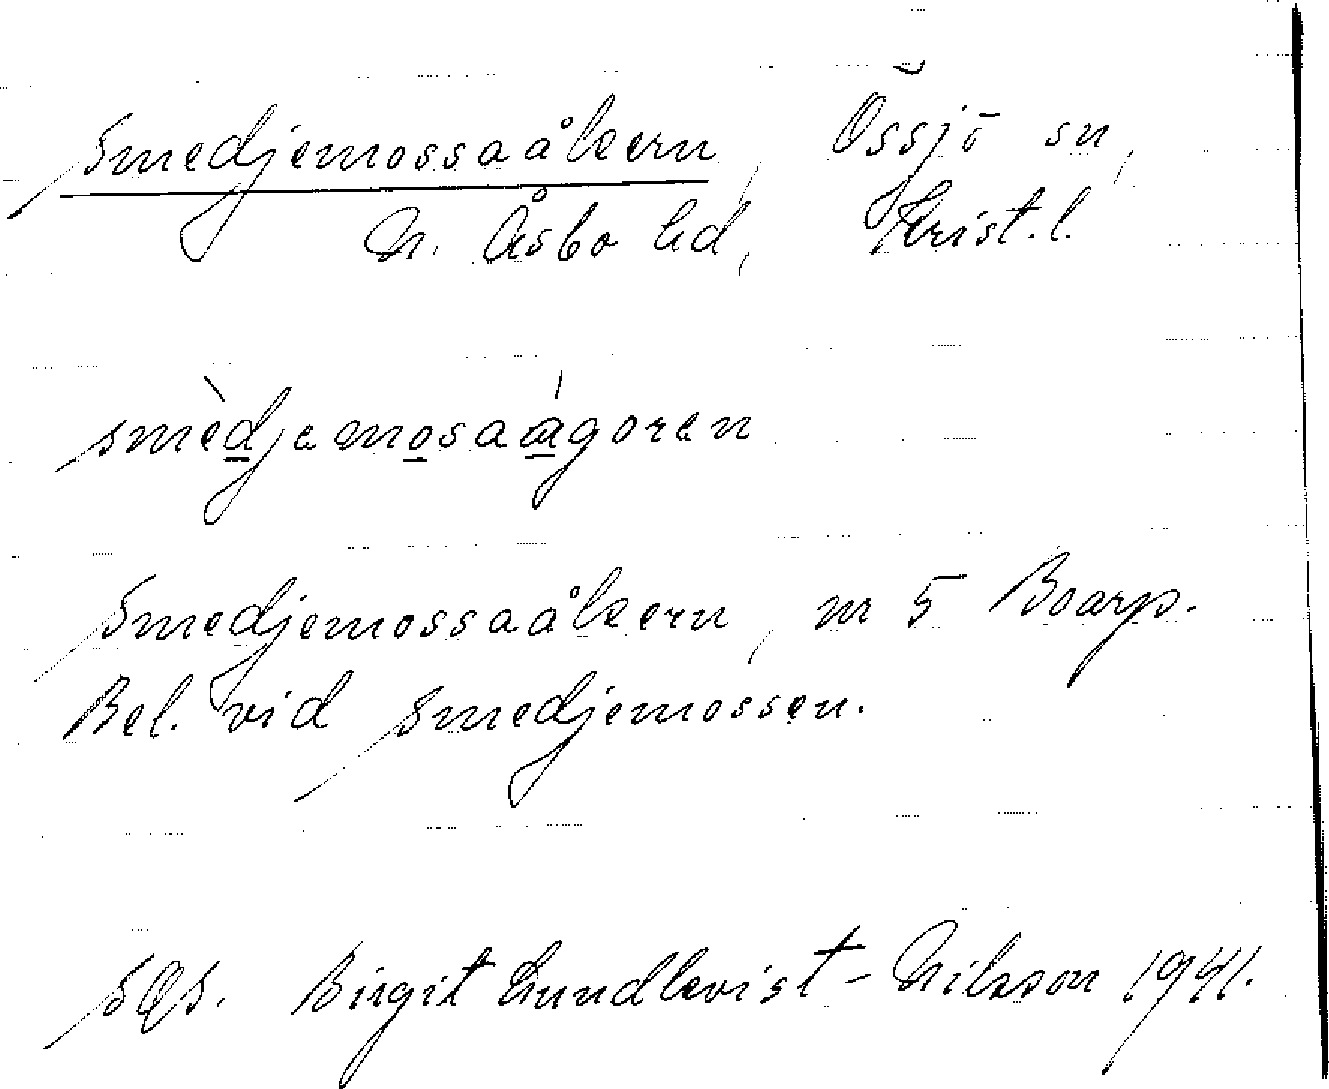 Smedjemossaåkern, Össjö sn,
N. Åsbo hd, Krist. l.
smèdjemosaágoren
Smedjemossaåkern, nr 5 Boarp.
Bel. vid Smedjemossen.
SOS. Birgit Lundkvist-Nilsson 1941.